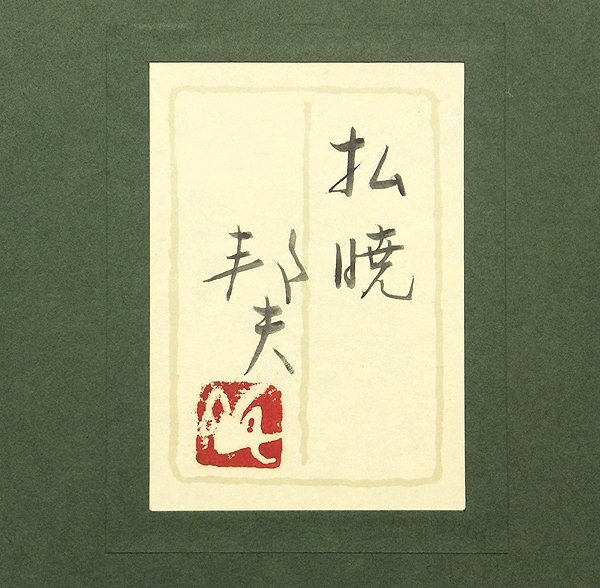 払暁
邦夫